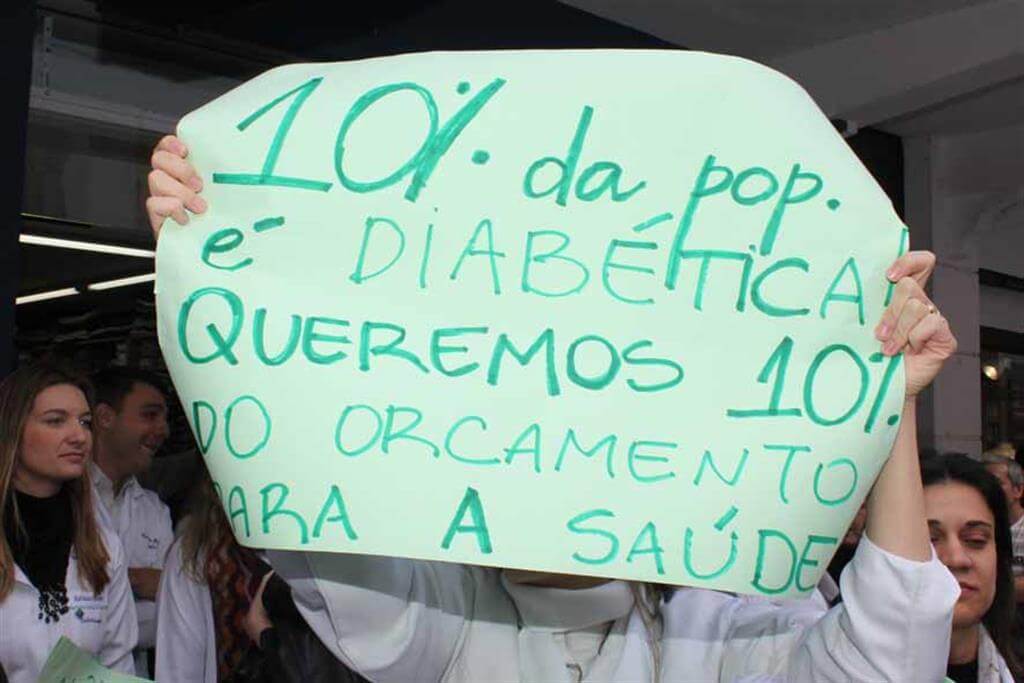 10% da pop.
é DIABÉTICA!
QUEREMOS 10%
DO ORCAMENTO
PARA A SAÚDE